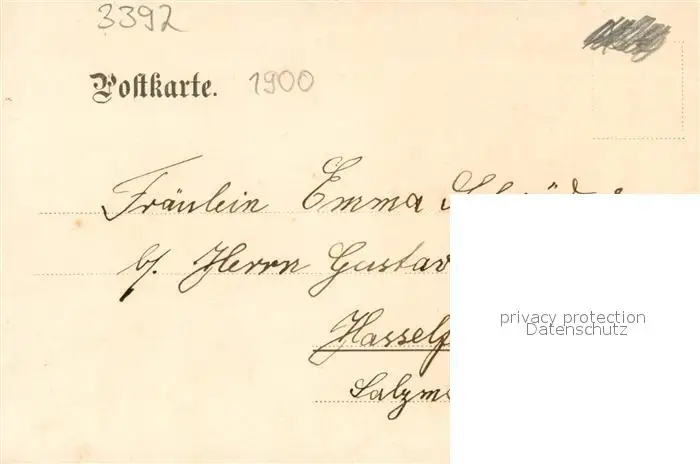 3392
Postkarte. 1900
Fräulein Emma
b/. Herrn Gustav
Hasself
Salzm
privacy protection
Datenschutz